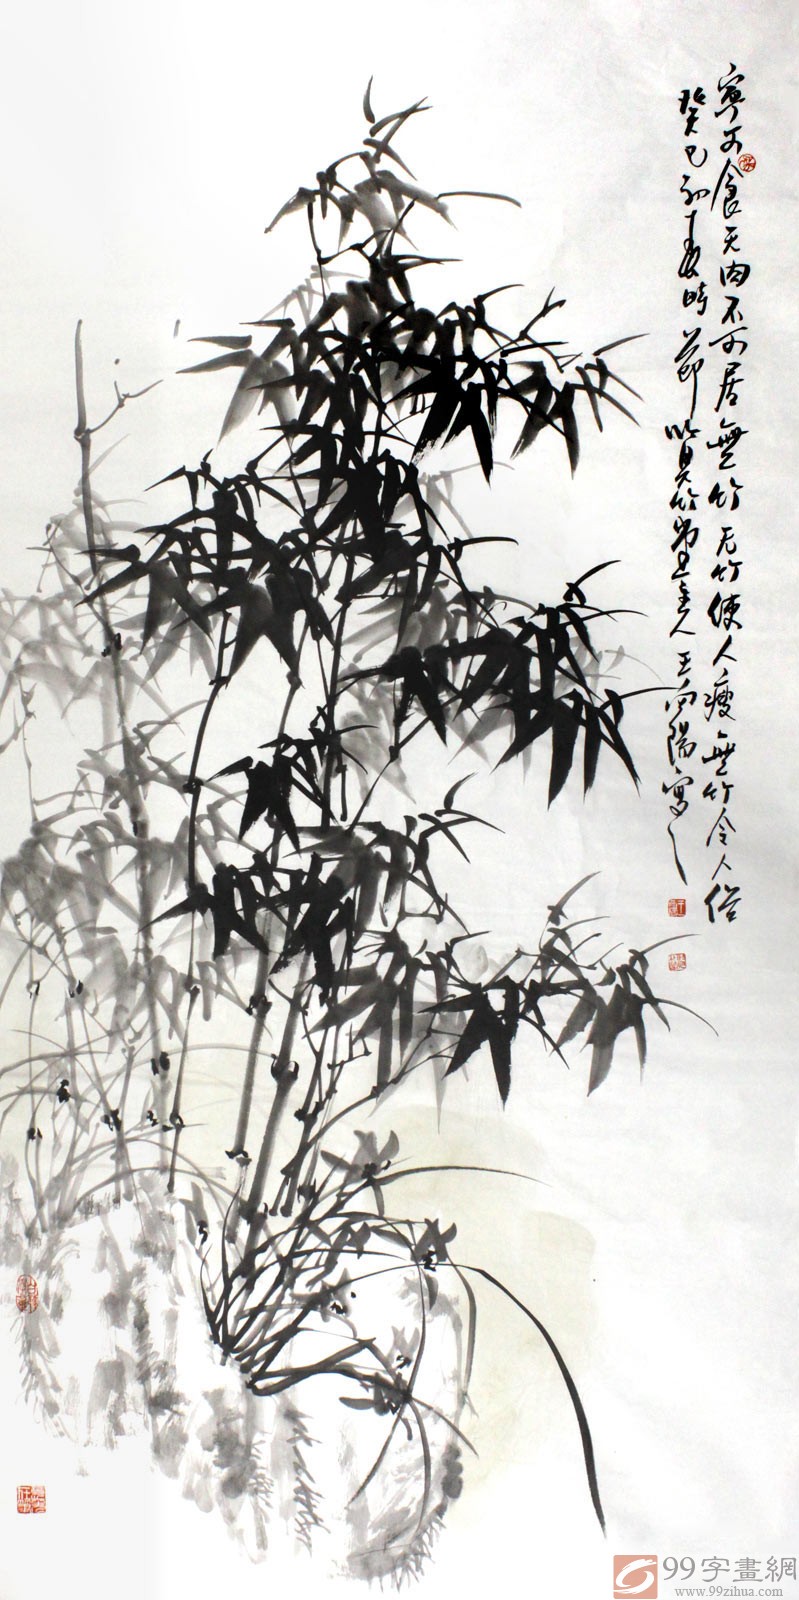 寧可食无肉不可居無竹无竹使人瘦無竹令人俗
癸巳初春時節竹主人王向陽寫之
99字畫網
www.99zihua.com